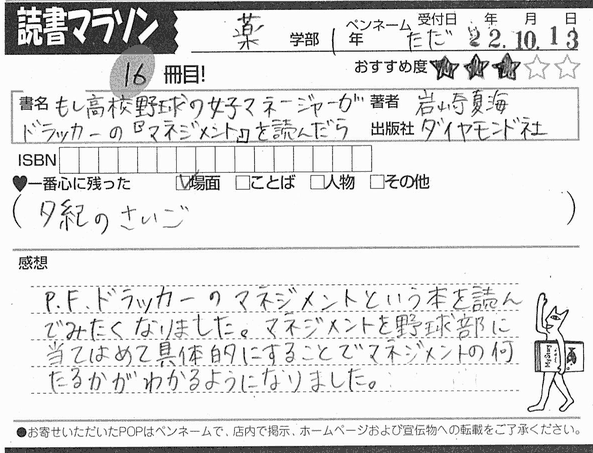 読書マラソン
薬 学部 1年 ペンネーム ただ 受付日 22年10月13日
16 冊目! おすすめ度 ★★★☆☆
書名 もし高校野球の女子マネージャーが 著者 岩崎夏海
ドラッカーの『マネジメント』を読んだら 出版社 ダイヤモンド社
ISBN
♥一番心に残った ☑場面 □ことば □人物 □その他
(夕紀のさいご)
感想
P.F.ドラッカーのマネジメントという本を読ん
でみたくなりました。マネジメントを野球部に
当てはめて具体的にすることでマネジメントの何
たるかがわかるようになりました。
●お寄せいただいたPOPはペンネームで、店内で掲示、ホームページおよび宣伝物への転載をご了承ください。